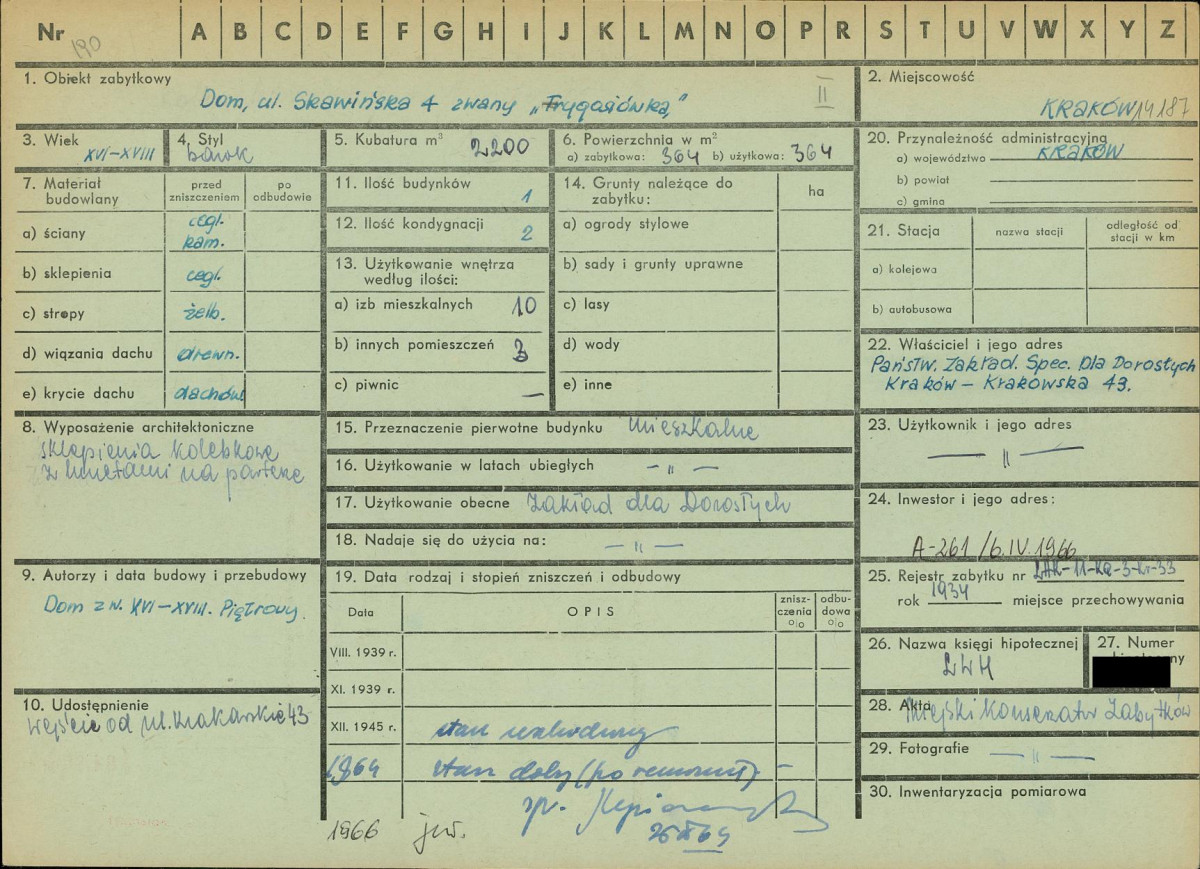 Nr 190 A B C D E F G H I J K L M N O P R S T U V W X Y Z
1. Obiekt zabytkowy
Dom, ul. Skawińska 4 zwany „Frygasiówką”
II
2. Miejscowość
KRAKÓW 14187
3. Wiek
XVI–XVIII
4. Styl
barok
5. Kubatura m³ 2200
6. Powierzchnia w m²
a) zabytkowa: 364 b) użytkowa: 364
20. Przynależność administracyjna
a) województwo KRAKÓW
b) powiat
c) gmina
7. Materiał budowlany
przed zniszczeniem
po odbudowie
a) ściany cegl. kam.
b) sklepienia cegl.
c) stropy żelb.
d) wiązania dachu drewn.
e) krycie dachu dachów
11. Ilość budynków 1
12. Ilość kondygnacji 2
13. Użytkowanie wnętrza
według ilości:
a) izb mieszkalnych 10
b) innych pomieszczeń 3
c) piwnic —
14. Grunty należące do
zabytku:
ha
a) ogrody stylowe
b) sady i grunty uprawne
c) lasy
d) wody
e) inne
21. Stacja
nazwa stacji
odległość od
stacji w km
a) kolejowa
b) autobusowa
22. Właściciel i jego adres
Państw. Zakład. Spec. Dla Dorosłych
Kraków – Krakowska 43.
8. Wyposażenie architektoniczne
sklepienia kolebkowe
z lunetami na parterze
15. Przeznaczenie pierwotne budynku mieszkalne
16. Użytkowanie w latach ubiegłych – " –
17. Użytkowanie obecne Zakład dla Dorosłych
18. Nadaje się do użycia na: – " –
23. Użytkownik i jego adres
— " —
24. Inwestor i jego adres:
A-261/6.IV.1966
9. Autorzy i data budowy i przebudowy
Dom z w. XVI–XVIII. Piętrowy.
19. Data rodzaj i stopień zniszczeń i odbudowy
Data
OPIS
zniszczenia %
odbudowa %
VIII. 1939 r.
XI. 1939 r.
XII. 1945 r.
1964 stan dobry (po remoncie) –
26 64
1966 jw.
25. Rejestr zabytku nr
rok 1934 miejsce przechowywania
26. Nazwa księgi hipotecznej
LWH
27. Numer
10. Udostępnienie
wejście od ul. Krakowskiej 43
28. Akta Miejski Konserwator Zabytków
29. Fotografie – " –
30. Inwentaryzacja pomiarowa